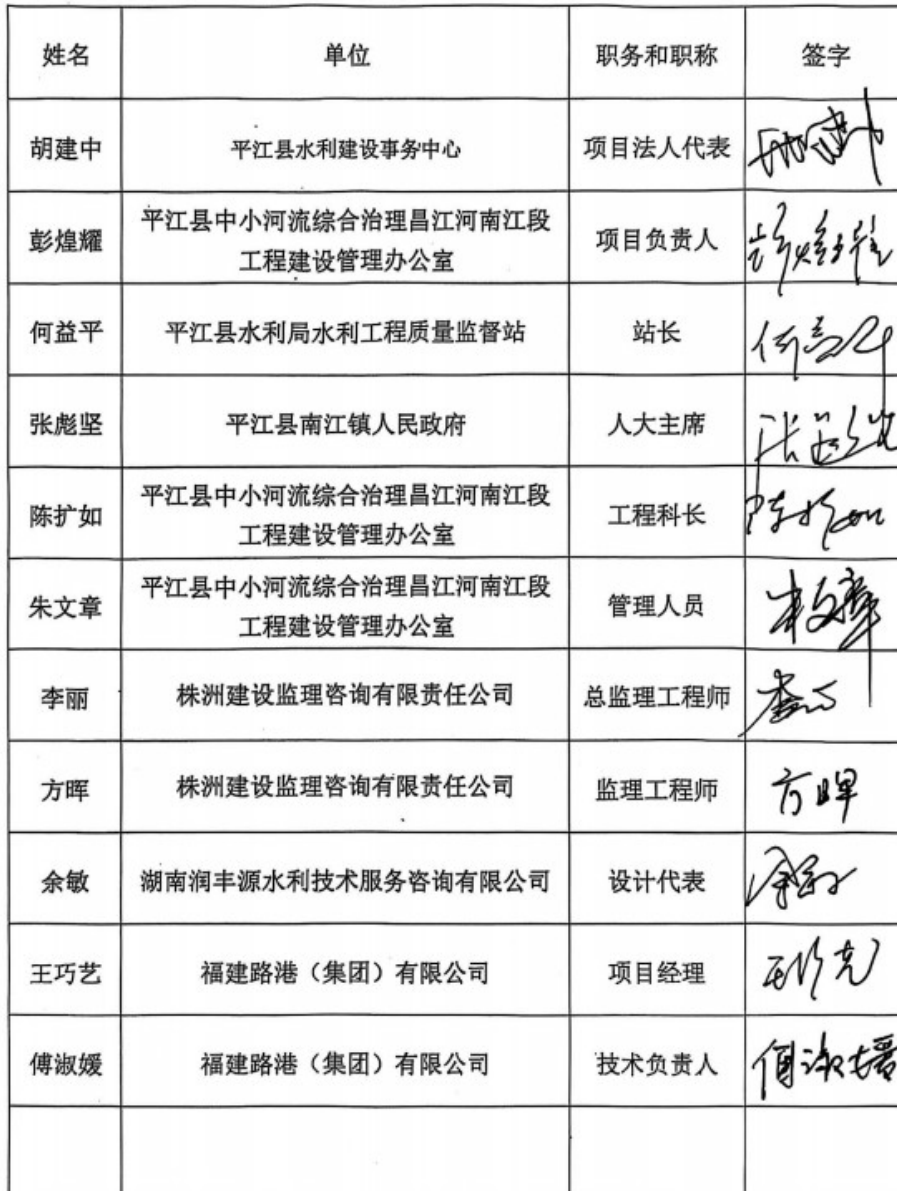 姓名 单位 职务和职称 签字
胡建中 平江县水利建设事务中心 项目法人代表 胡建中
彭煌耀 平江县中小河流综合治理昌江河南江段 项目负责人 彭煌耀
工程建设管理办公室
何益平 平江县水利局水利工程质量监督站 站长 何益平
张彪坚 平江县南江镇人民政府 人大主席
陈扩如 平江县中小河流综合治理昌江河南江段 工程科长 陈扩如
工程建设管理办公室
朱文章 平江县中小河流综合治理昌江河南江段 管理人员 朱文章
工程建设管理办公室
李丽 株洲建设监理咨询有限责任公司 总监理工程师 李丽
方晖 株洲建设监理咨询有限责任公司 监理工程师 方晖
余敏 湖南润丰源水利技术服务咨询有限公司 设计代表 余敏
王巧艺 福建路港（集团）有限公司 项目经理
傅淑媛 福建路港（集团）有限公司 技术负责人 傅淑媛